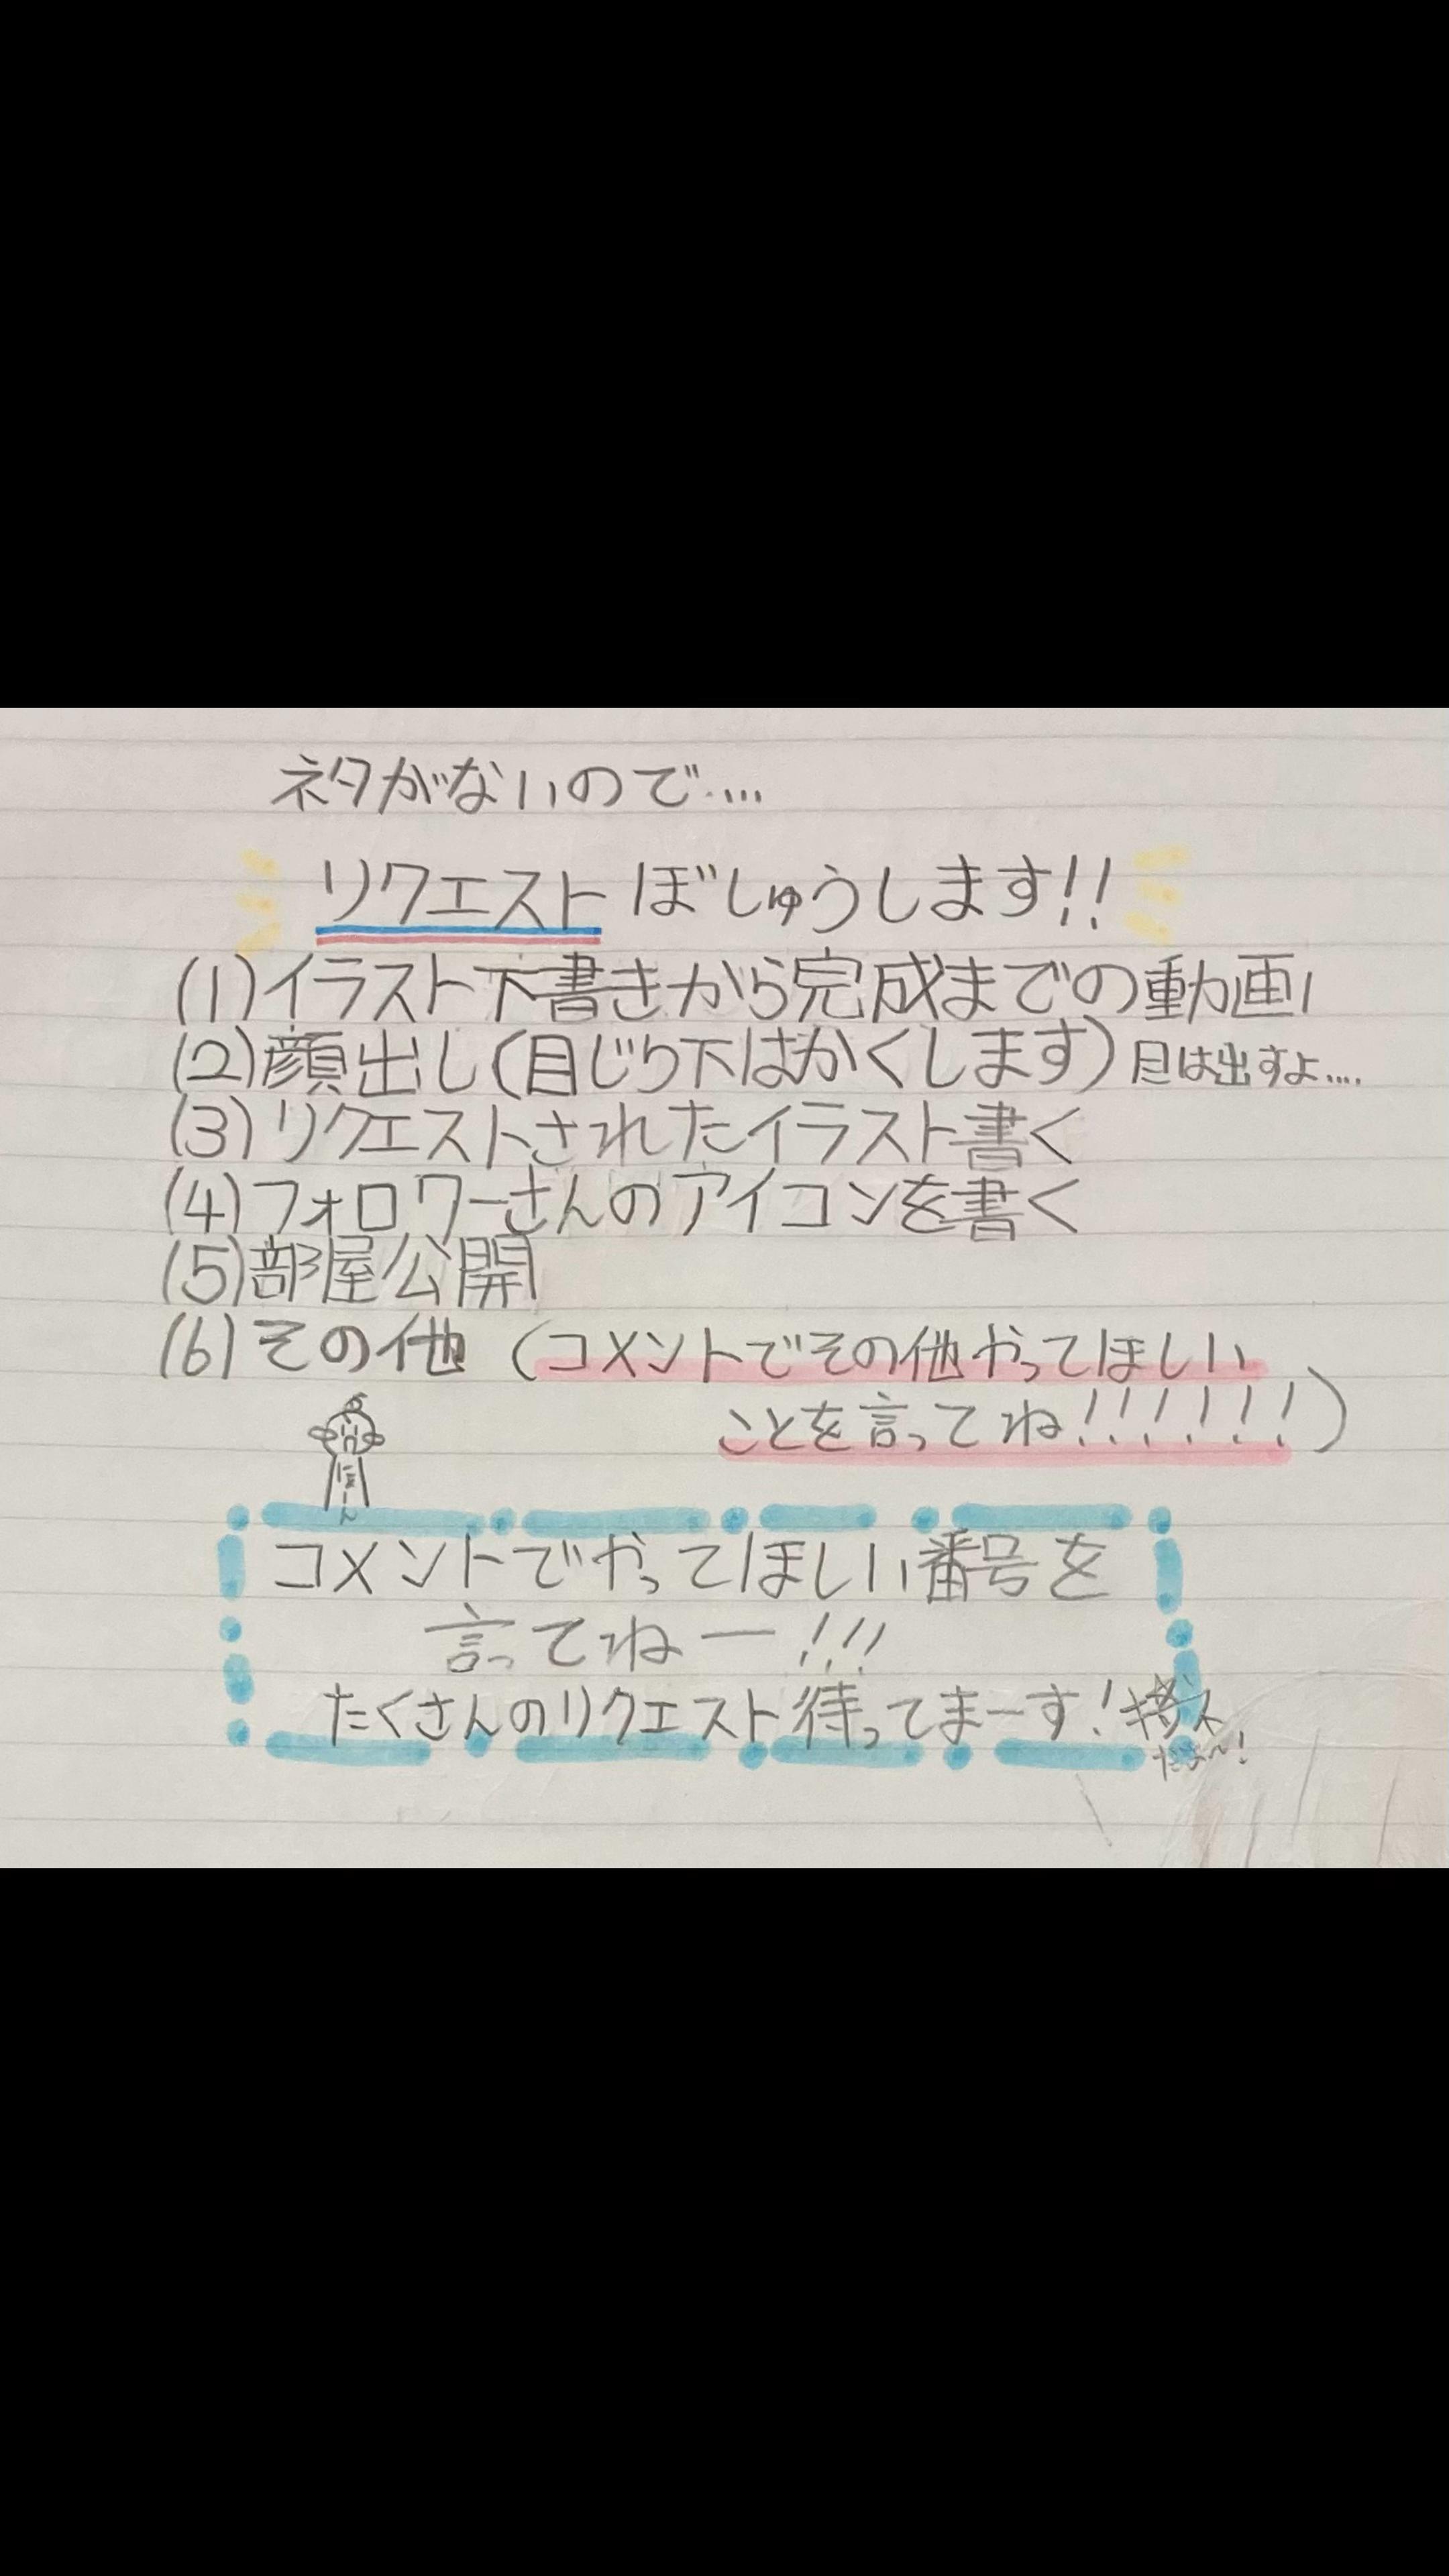 ネタがないので....
リクエストぼしゅうします!!
(1)イラスト下書きから完成までの動画
(2)顔出し(目じり下はかくします)目は出すよ....
(3)リクエストされたイラスト書く
(4)フォロワーさんのアイコンを書く
(5)部屋公開
(6)その他(コメントでその他やってほしい
ことを言ってね!!!!!!)
コメントでやってほしい番号を
言ってねー!!!
たくさんのリクエスト待ってまーす!